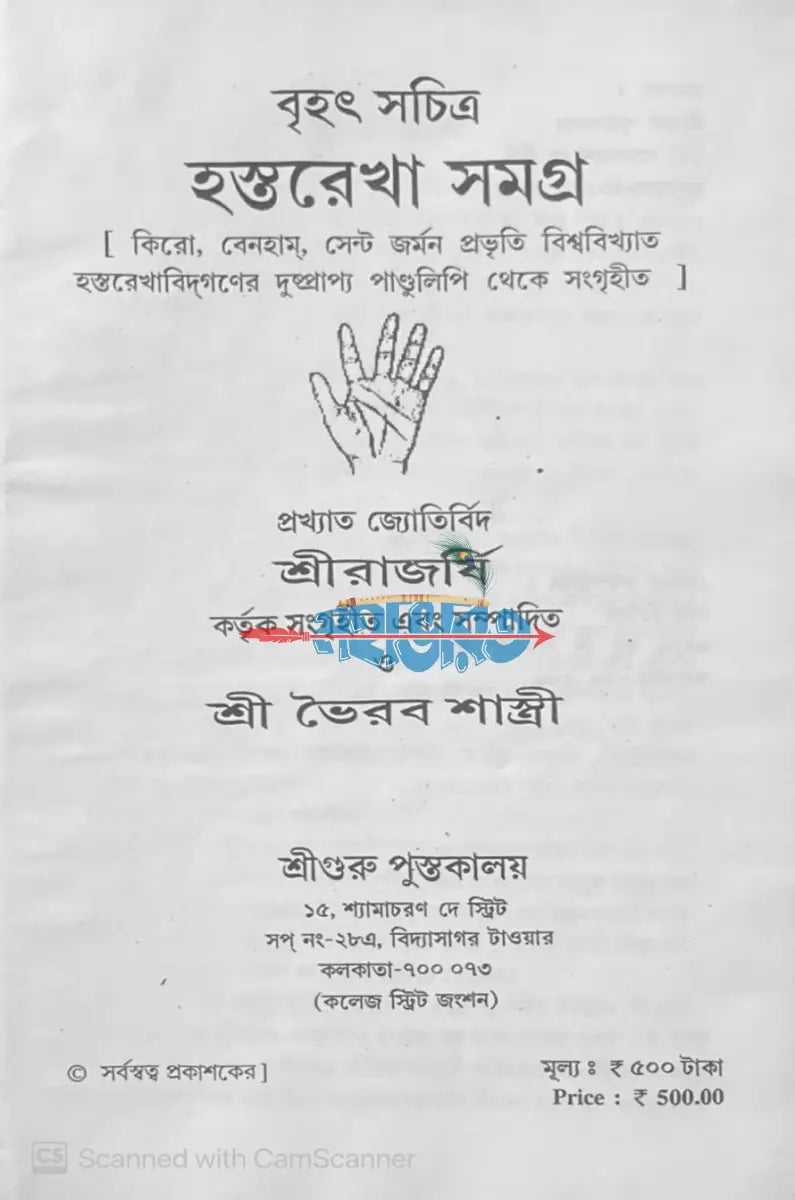 বৃহৎ সচিত্র
হস্তরেখা সমগ্র
[ কিরো, বেনহাম্, সেন্ট জর্মন প্রভৃতি বিশ্ববিখ্যাত
হস্তরেখাবিদ্‌গণের দুষ্প্রাপ্য পাণ্ডুলিপি থেকে সংগৃহীত ]
প্রখ্যাত জ্যোতির্বিদ
শ্রীরাজর্ষি
কর্তৃক সংগৃহীত এবং সম্পাদিত
মহাভারত
ও
শ্রী ভৈরব শাস্ত্রী
শ্রীগুরু পুস্তকালয়
১৫, শ্যামাচরণ দে স্ট্রিট
সপ্ নং-২৮এ, বিদ্যাসাগর টাওয়ার
কলকাতা-৭০০ ০৭৩
(কলেজ স্ট্রিট জংশন)
© সর্বস্বত্ব প্রকাশকের ]
মূল্য ঃ ₹ ৫০০ টাকা
Price : ₹ 500.00
CS Scanned with CamScanner